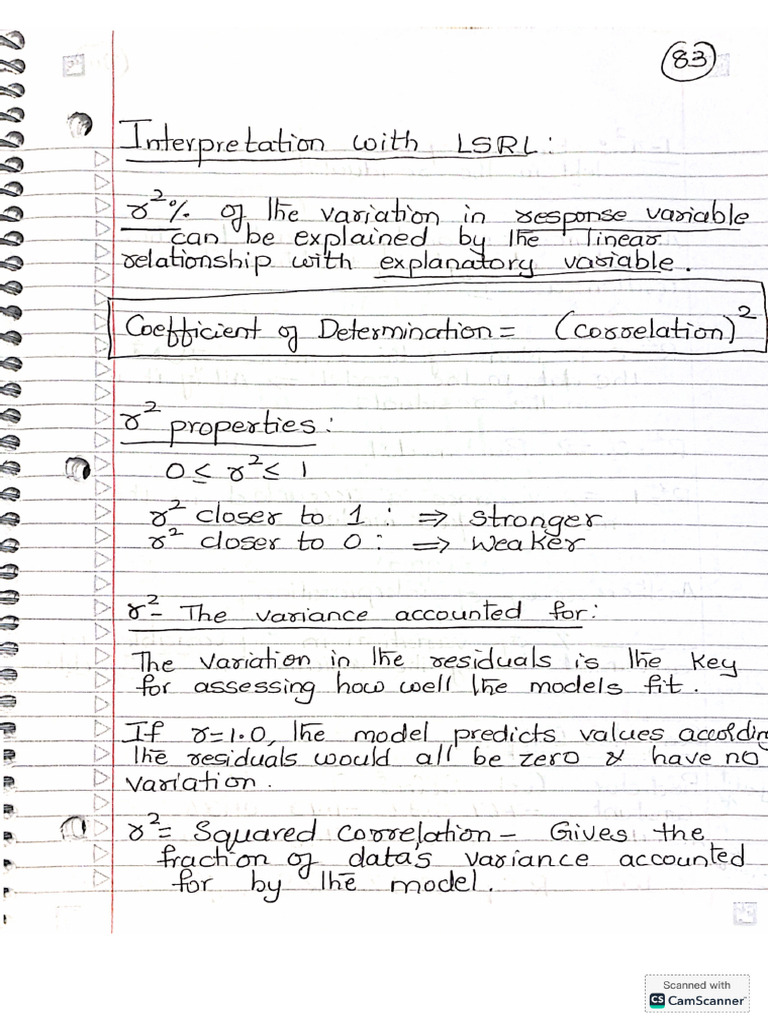 83
Interpretation with LSRL:
r²% of the variation in response variable
can be explained by the linear
relationship with explanatory variable.
Coefficient of Determination = (correlation)²
r² properties:
0 ≤ r² ≤ 1
r² closer to 1 : ⇒ stronger
r² closer to 0 : ⇒ weaker
r² - The variance accounted for:
The variation in the residuals is the key
for assessing how well the models fit.
If r=1.0, the model predicts values according
the residuals would all be zero & have no
variation.
r² = Squared correlation - Gives the
fraction of data's variance accounted
for by the model.
Scanned with
CS CamScanner